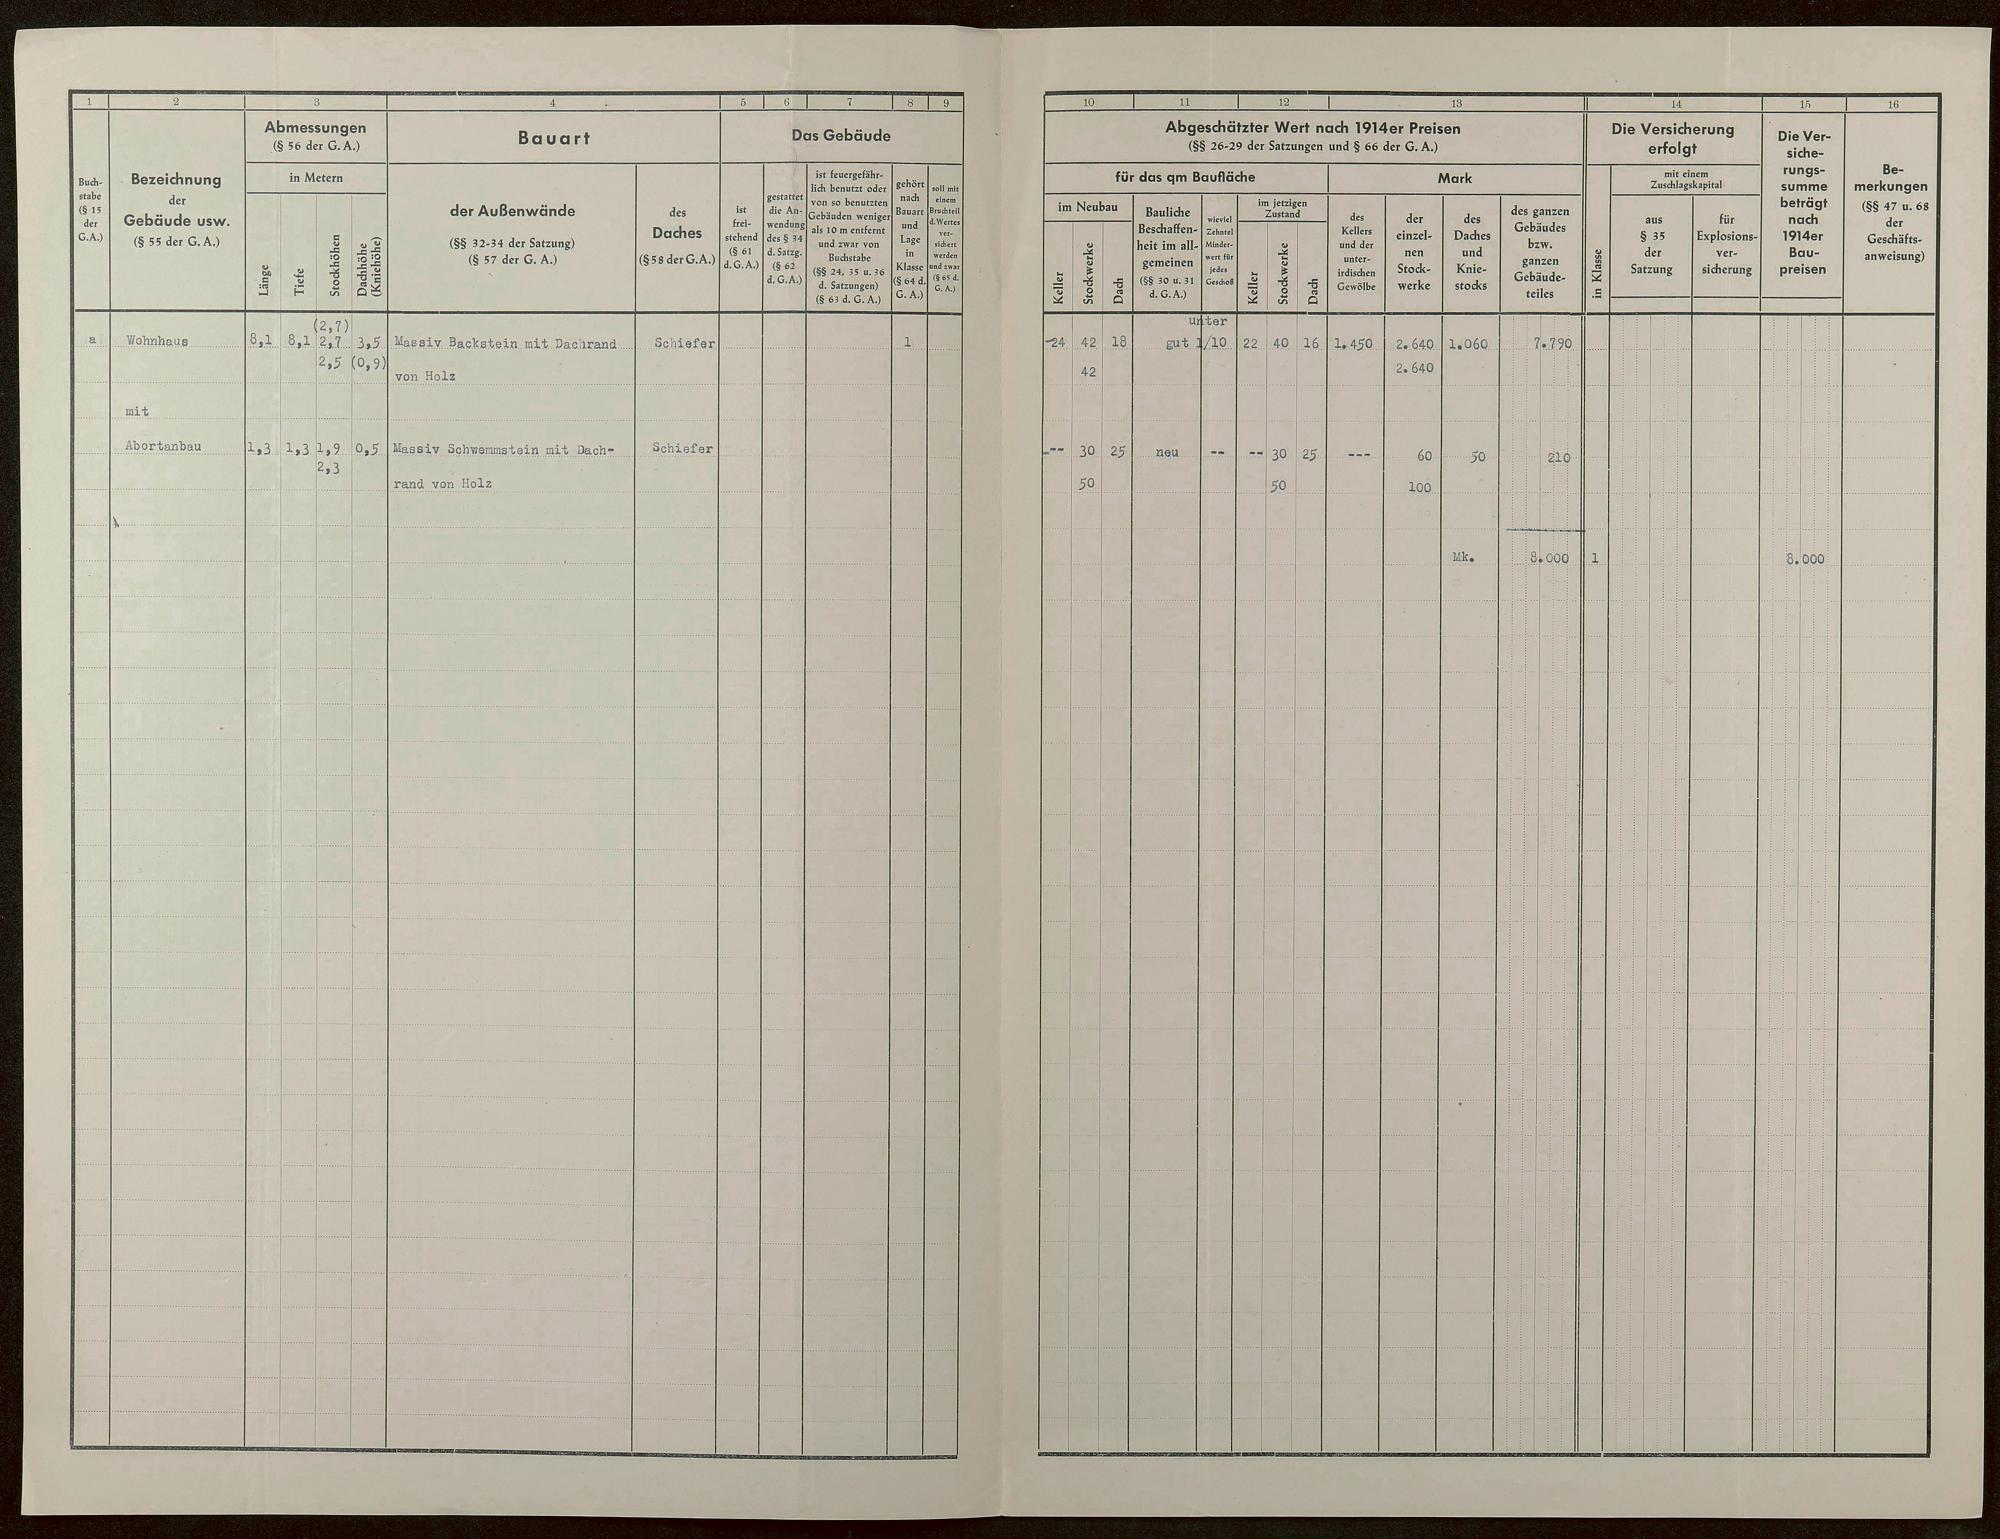 1 2 3 4 5 6 7 8 9
Buch-
stabe
(§ 15
der
G.A.)
Bezeichnung
der
Gebäude usw.
(§ 55 der G. A.)
Abmessungen
(§ 56 der G. A.)
in Metern
Länge
Tiefe
Stockhöhen
Dachhöhe
(Kniehöhe)
Bauart
der Außenwände
(§§ 32-34 der Satzung)
(§ 57 der G. A.)
des
Daches
(§ 58 der G. A.)
Das Gebäude
ist
frei-
stehend
(§ 61
d. G. A.)
gestattet
die An-
wendung
des § 34
d. Satzg.
(§ 62
d. G. A.)
ist feuergefähr-
lich benutzt oder
von so benutzten
Gebäuden weniger
als 10 m entfernt
und zwar von
Buchstabe
(§§ 24, 35 u. 36
d. Satzungen)
(§ 63 d. G. A.)
gehört
nach
Bauart
und
Lage
in
Klasse
(§ 64 d.
G. A.)
soll mit
einem
Bruchteil
d. Wertes
ver-
sichert
werden
und zwar
(§ 65 d.
G. A.)
(2,7)
a Wohnhaus 8,1 8,1 2,7 3,5 Massiv Backstein mit Dachrand Schiefer 1
2,5 (0,9)
von Holz
mit
Abortanbau 1,3 1,3 1,9 0,5 Massiv Schwemmstein mit Dach- Schiefer
2,3
rand von Holz
10 11 12 13 14 15 16
Abgeschätzter Wert nach 1914er Preisen
(§§ 26-29 der Satzungen und § 66 der G. A.)
für das qm Baufläche
im Neubau
Keller
Stockwerke
Dach
Bauliche
Beschaffen-
heit im all-
gemeinen
(§§ 30 u. 31
d. G. A.)
wieviel
Zehntel
Minder-
wert für
jedes
Geschoß
im jetzigen
Zustand
Keller
Stockwerke
Dach
Mark
des
Kellers
und der
unter-
irdischen
Gewölbe
der
einzel-
nen
Stock-
werke
des
Daches
und
Knie-
stocks
des ganzen
Gebäudes
bzw.
ganzen
Gebäude-
teiles
Die Versicherung
erfolgt
in Klasse
mit einem
Zuschlagskapital
aus
§ 35
der
Satzung
für
Explosions-
ver-
sicherung
Die Ver-
siche-
rungs-
summe
beträgt
nach
1914er
Bau-
preisen
Be-
merkungen
(§§ 47 u. 68
der
Geschäfts-
anweisung)
unter
24 42 18 gut 1/10 22 40 16 1.450 2.640 1.060 7.790
42 2.640
--- 30 25 neu -- -- 30 25 --- 60 50 210
50 50 100
Mk. 8.000 1 8.000